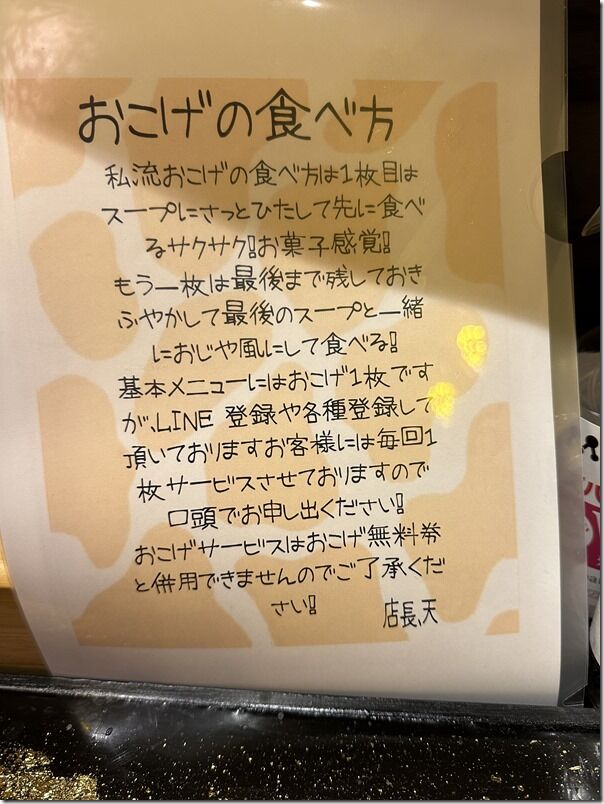 おこげの食べ方
私流おこげの食べ方は1枚目は
スープにさっとひたして先に食べ
るサクサク!お菓子感覚!
もう一枚は最後まで残しておき
ふやかして最後のスープと一緒
におじや風にして食べる!
基本メニューにはおこげ1枚です
が、LINE 登録や各種登録して
頂いておりますお客様には毎回1
枚サービスさせておりますので
口頭でお申し出ください!
おこげサービスはおこげ無料券
と併用できませんのでご了承くだ
さい! 店長、天